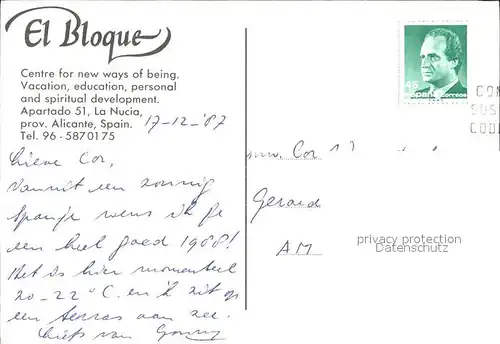 El Bloque
Centre for new ways of being.
Vacation, education, personal
and spiritual development.
Apartado 51, La Nucia,
prov. Alicante, Spain.
Tel. 96 - 5870175
17-12-'87
Lieve Cor,
Vanuit een zonnig
Spanje wens ik je
een heel goed 1988!
Het is hier momenteel
20-22°C. en ik zit op
een terras aan zee.
Liefs van
45
España correos
Cor
Gerard
AM
privacy protection
Datenschutz